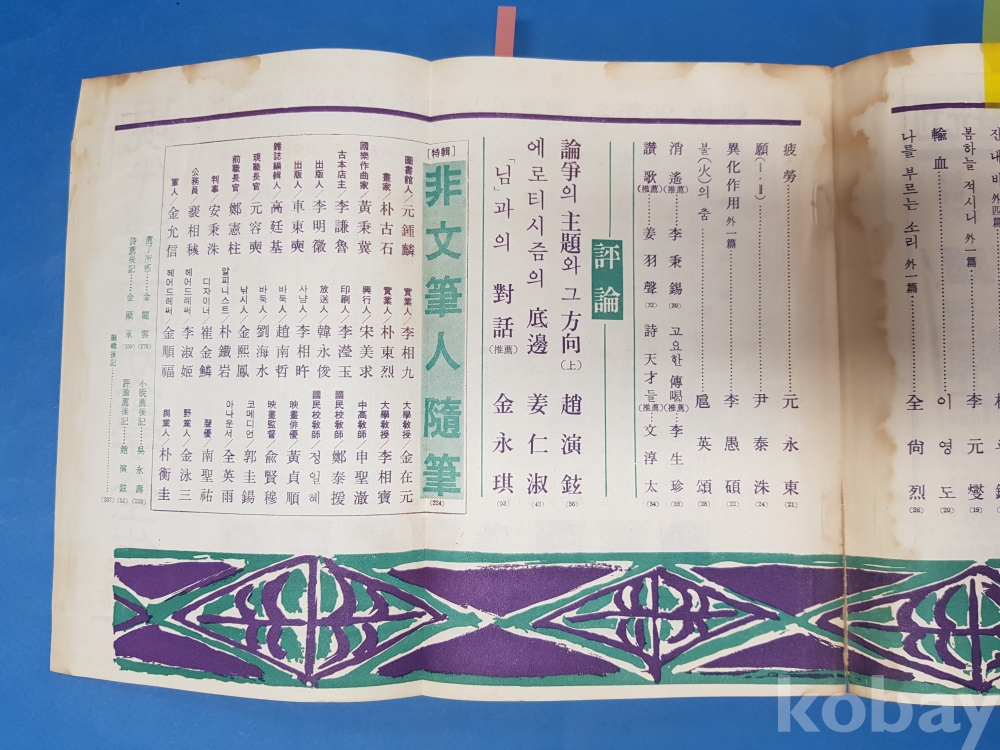 봄하늘 적시니 外一篇
李元燮 (19)
輸血
이영도 (20)
나를 부르는 소리 外一篇
全尙烈 (26)
疲勞
元永東 (21)
願(Ⅰ·Ⅱ)
尹泰洙 (24)
異化作用 外一篇
李愚碩 (22)
불(火)의 춤
扈英頌 (28)
消遙(推薦) 李秉錫 (30) 고요한 傳喝(推薦) 李生珍 (33)
讚歌(推薦) 姜羽聲 (32) 詩天才들(推薦) 文淳太 (34)
評論
論爭의 主題와 그 方向(上) 趙演鉉 (36)
에로티시즘의 底邊 姜仁淑 (43)
「님」과의 對話(推薦) 金永琪 (53)
[特輯]
非文筆人隨筆 (224)
圖書館人/元鍾麟 實業人/李相九 大學教授/金在元
畫家/朴古石 實業人/朴東烈 大學教授/李相寶
國樂作曲家/黃秉冀 興行人/宋美求 中高教師/申聖澈
古本店主/李謙魯 印刷人/李瀅玉 國民校教師/鄭泰援
出版人/李明徽 放送人/韓永俊 國民校教師/정일혜
出版人/車東奭 사냥人/李相旿 映畫俳優/黃貞順
雜誌編輯人/高廷基 바둑人/趙南哲 映畫監督/兪賢穆
現職長官/元容奭 바둑人/劉海水 코메디언/郭圭錫
前職長官/鄭憲柱 낚시人/金熙鳳 아나운서/全英雨
判事/安秉洙 알피니스트/朴鐵岩 聲優/南聖祐
公務員/裵相穢 디자이너/崔金鱗 野黨人/金泳三
軍人/金允信 헤어드레써/李淑姬 與黨人/朴衡圭
헤어드레써/金順福
小說薦後記……吳永壽
詩薦後記……金顯承
評論薦後記……趙演鉉
編輯後記 (287)
kobay